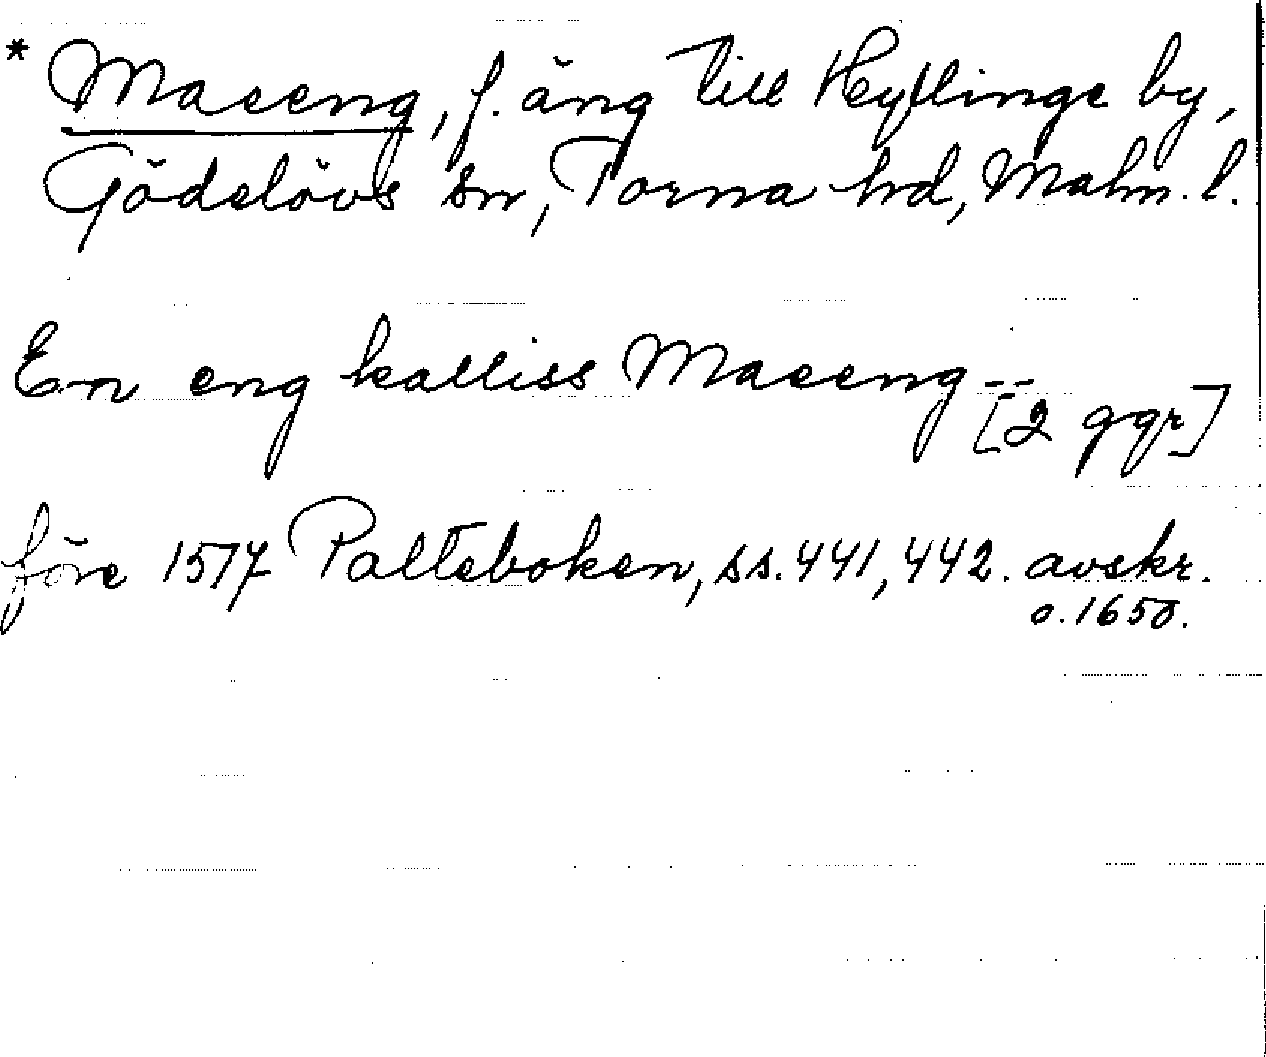 * Maeeng, f. äng till Heyflinge by,
Gödelövs sn, Torna hd, Malm. l.
En eng kalliss Maeeng -- 
[2 ggr]
före 1577 Palteboken, ss. 441, 442. avskr.
o. 1650.